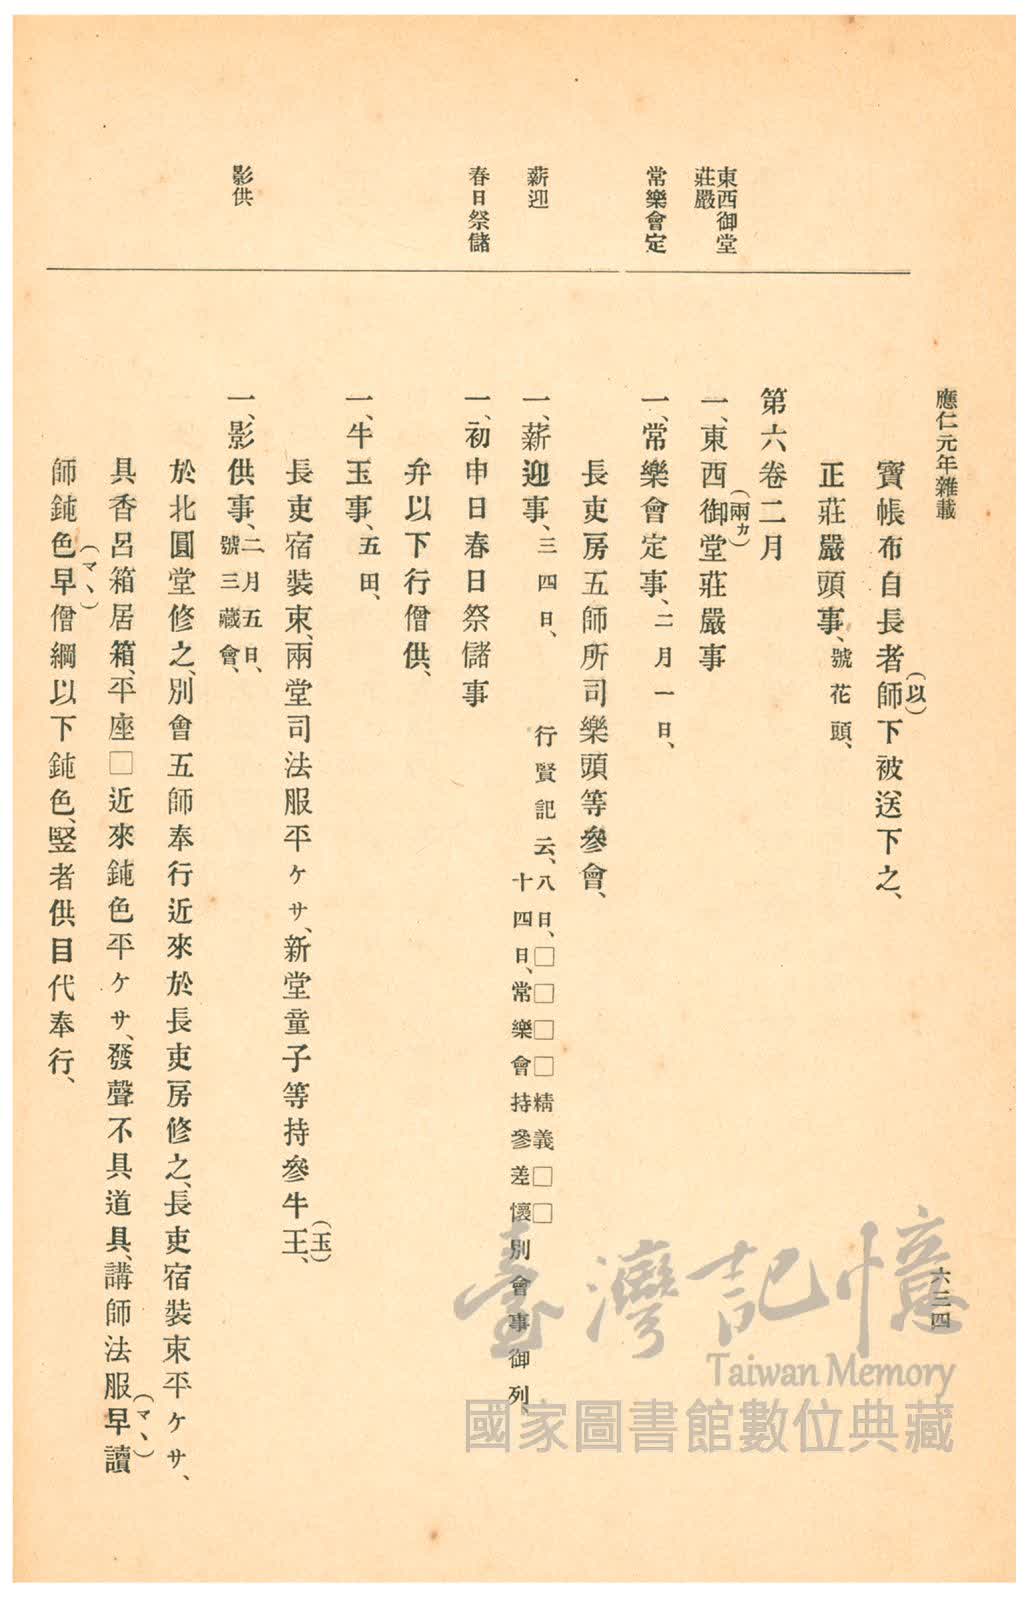 應仁元年雜載
六三四
東西御堂
莊嚴
常樂會定
薪迎
春日祭儲
影供
寶帳布自長者師(以)下被送下之、
正莊嚴頭事、號花頭、
第六卷二月
一、東西(兩カ)御堂莊嚴事
一、常樂會定事、二月一日、
長吏房五師所司樂頭等參會、
一、薪迎事、三四日、行賢記云、八日、□□□□精義□□
十四日、常樂會持參差懷別會事御列、
一、初申日春日祭儲事
弁以下行僧供、
一、牛玉事、五田、
長吏宿裝束、兩堂司法服平ケサ、新堂童子等持參牛王(玉)、
一、影供事、二月五日、
號三藏會、
於北圓堂修之、別會五師奉行近來於長吏房修之、長吏宿裝束平ケサ、
具香呂箱居箱、平座□近來鈍色平ケサ、發聲不具道具、講師法服早(マヽ)讀
師鈍色早(マヽ)僧綱以下鈍色、竪者供目代奉行、
臺灣記憶
Taiwan Memory
國家圖書館數位典藏